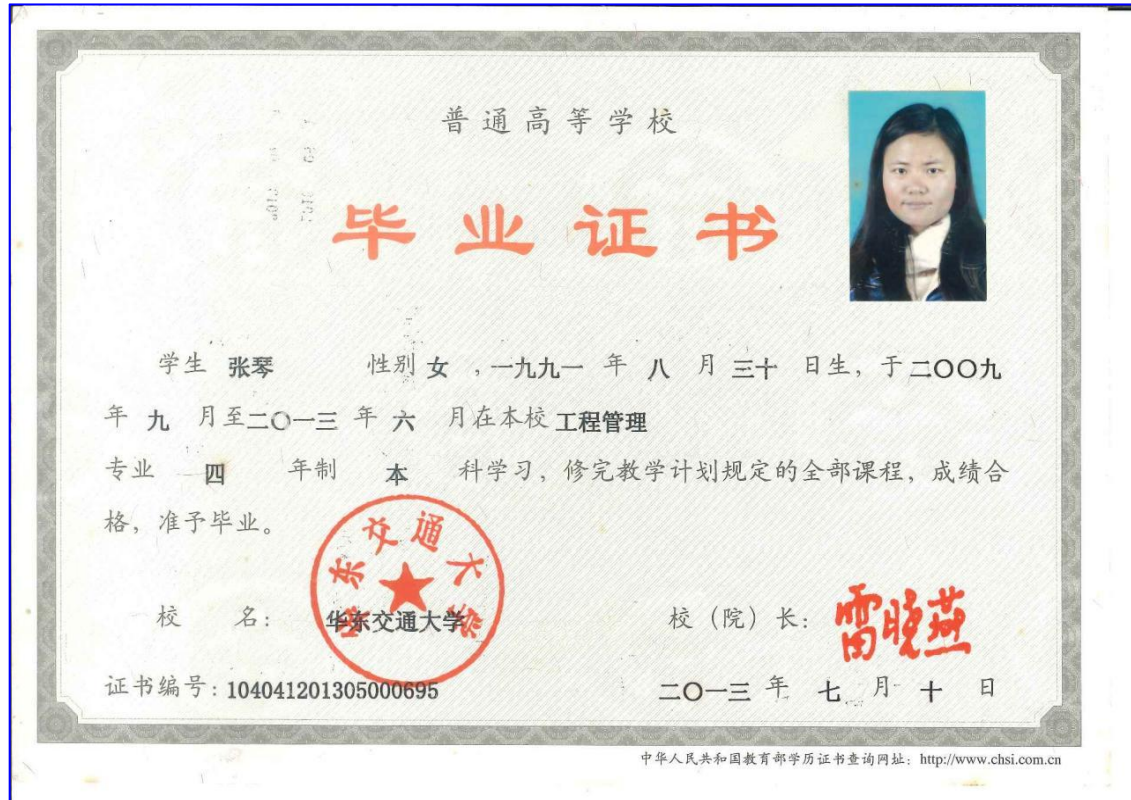 普通高等学校
毕业证书
学生 张琴 性别 女 ，一九九一 年 八 月 三十 日生，于二〇〇九
年 九 月至二〇一三 年 六 月在本校 工程管理
专业 四 年制 本 科学习，修完教学计划规定的全部课程，成绩合
格，准予毕业。
华东交通大学
校 名： 华东交通大学 校（院）长： 雷晓燕
证书编号：104041201305000695 二〇一三 年 七 月 十 日
中华人民共和国教育部学历证书查询网址：http://www.chsi.com.cn